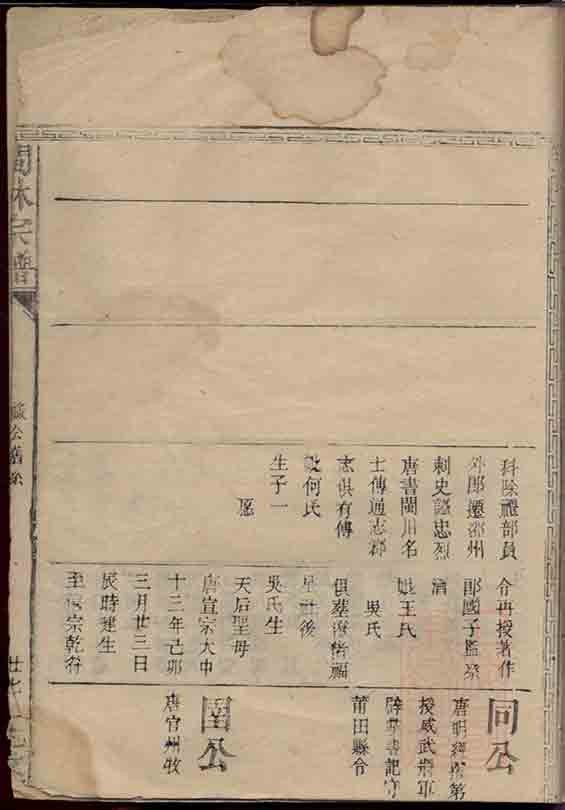 科除禮部員
外郎遷邵州
刺史諡忠烈
唐書閩川名
士傳通志郡
志俱有傳
何氏
生子一
愿
令再授著作
郎國子監祭
酒
妣王氏
吳氏
俱葬
後
吳氏生
天后聖母
唐宣宗大中
十三年己卯
三月廿三日
辰時建生
至僖宗乾符
同公
唐明經擢第
授威武將軍
辟掌書記守
莆田縣令
圉公
唐官州牧
林宗譜